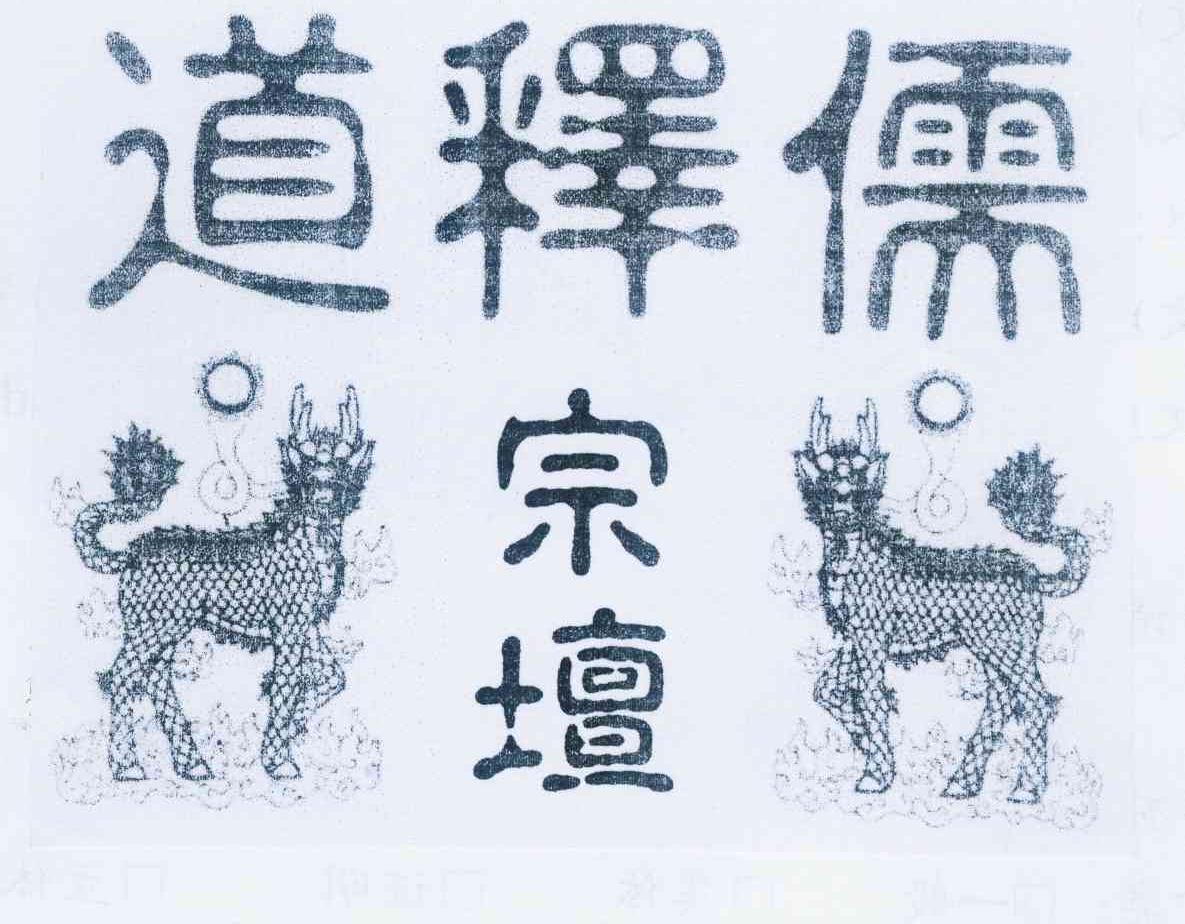 儒釋道
宗壇